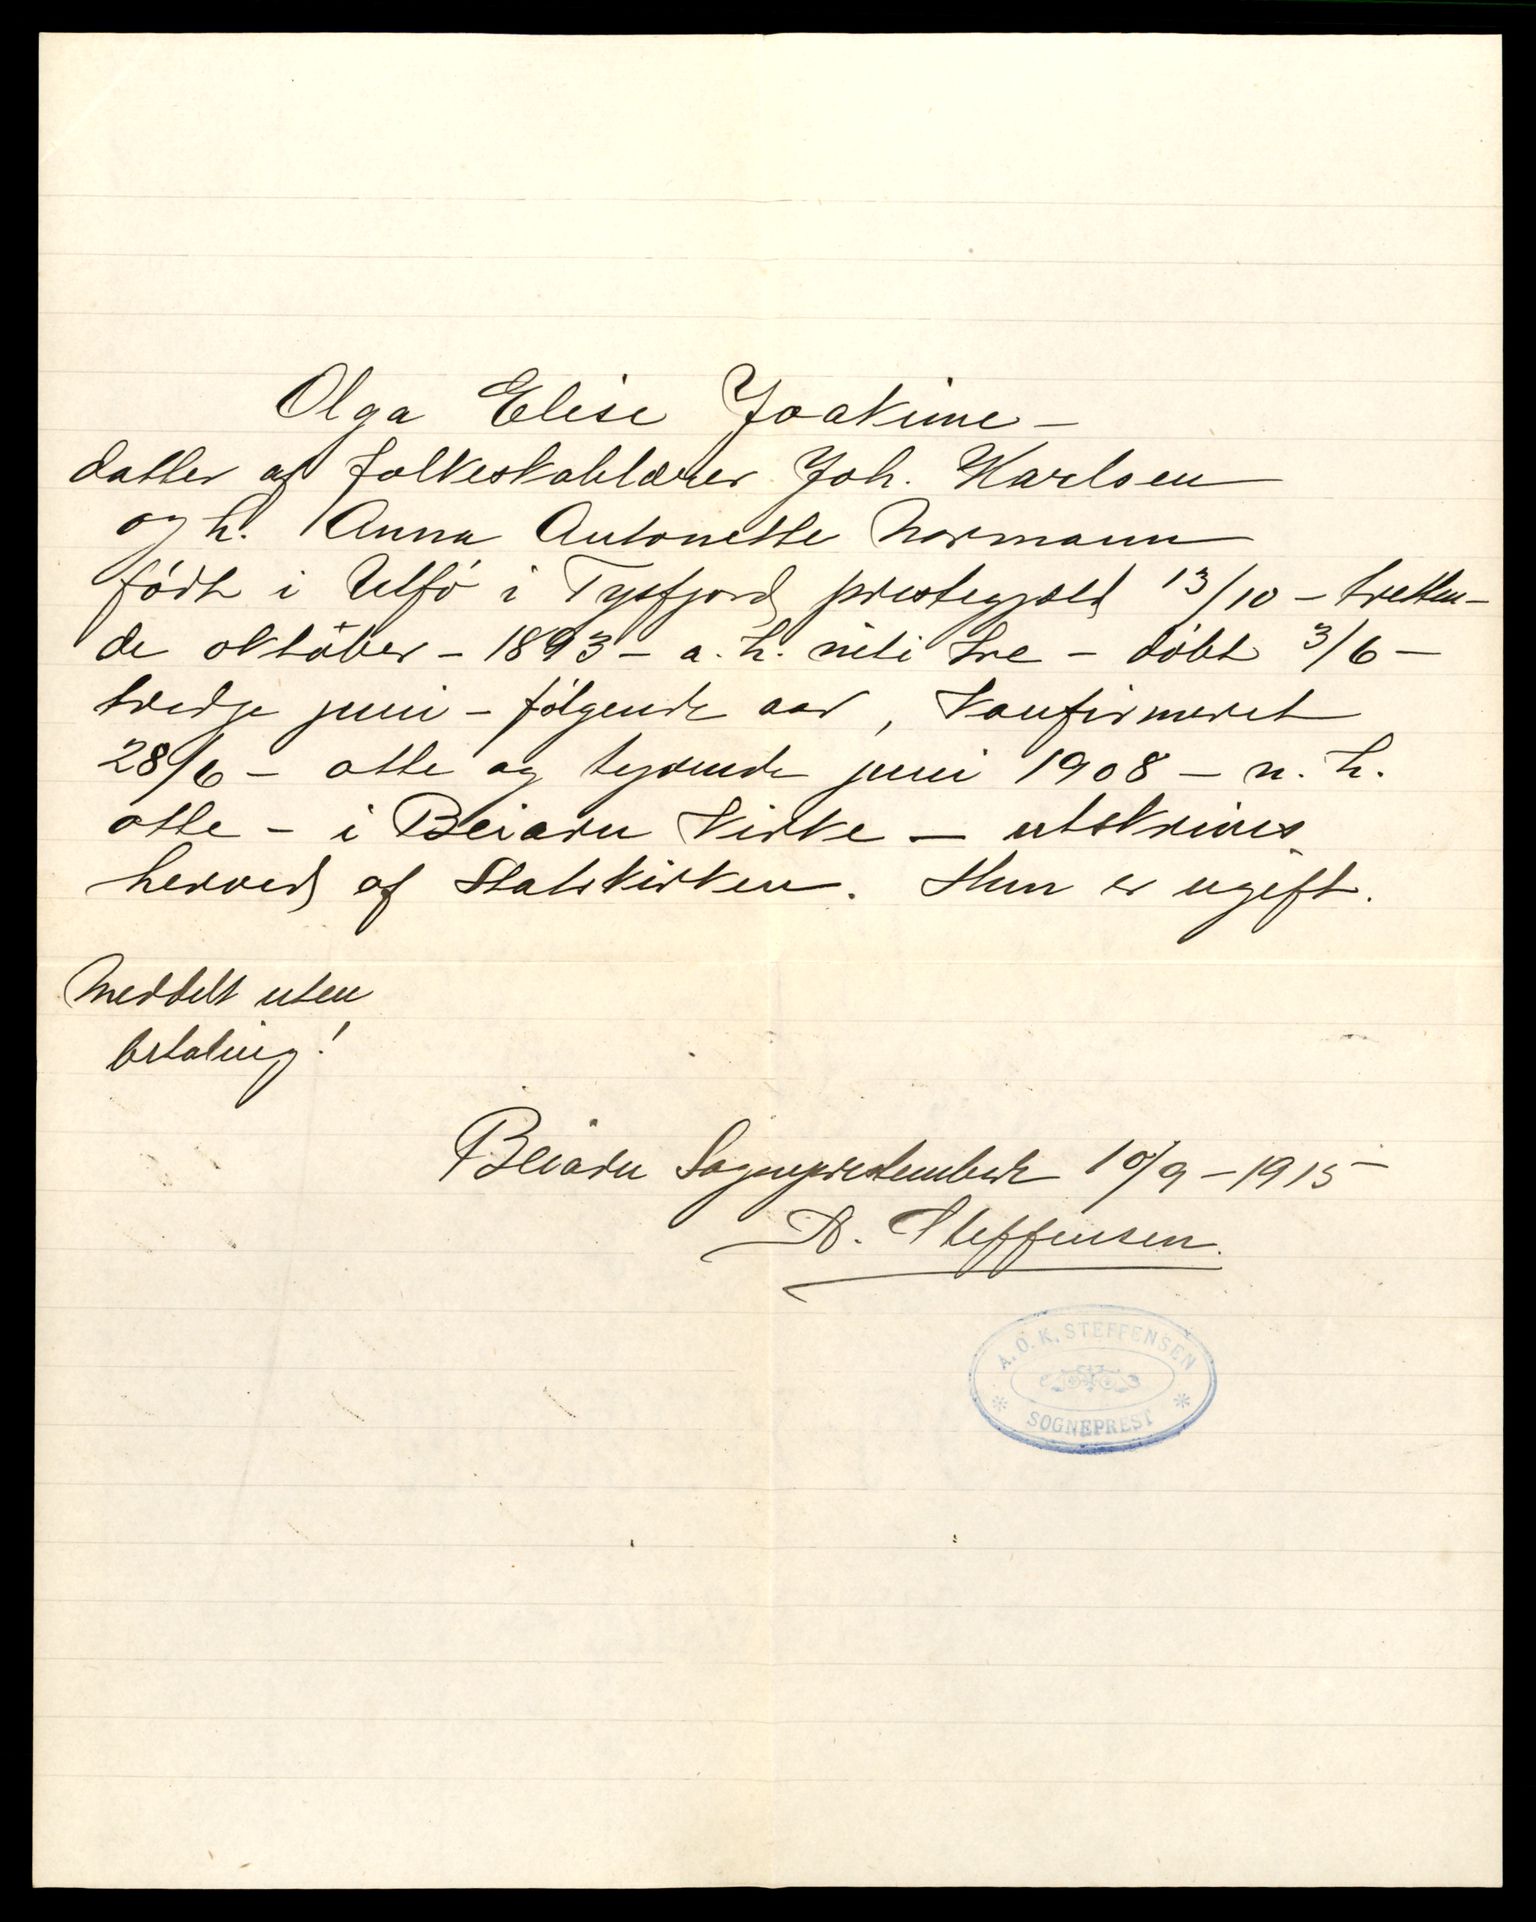 Olga Elise Joakime –
datter af folkeskolelærer Joh. Karlsen
og h. Anna Antonette Normann
født i Ulfø i Tysfjord prestegjæld 13/10 – tretten-
de oktober – 1893 – a. h. niti tre – døbt 3/6 –
tredje juni – følgende aar, konfirmeret
28/6 – otte og tyvende juni 1908 – n. h.
otte – i Beiarn kirke – utskrives
herved af Statskirken. Hun er ugift.
Meddelt uten
betaling!
Beiarn Sogneprestembede 10/9 – 1915
A. Steffensen.
A. O. K. STEFFENSEN
* SOGNEPREST *